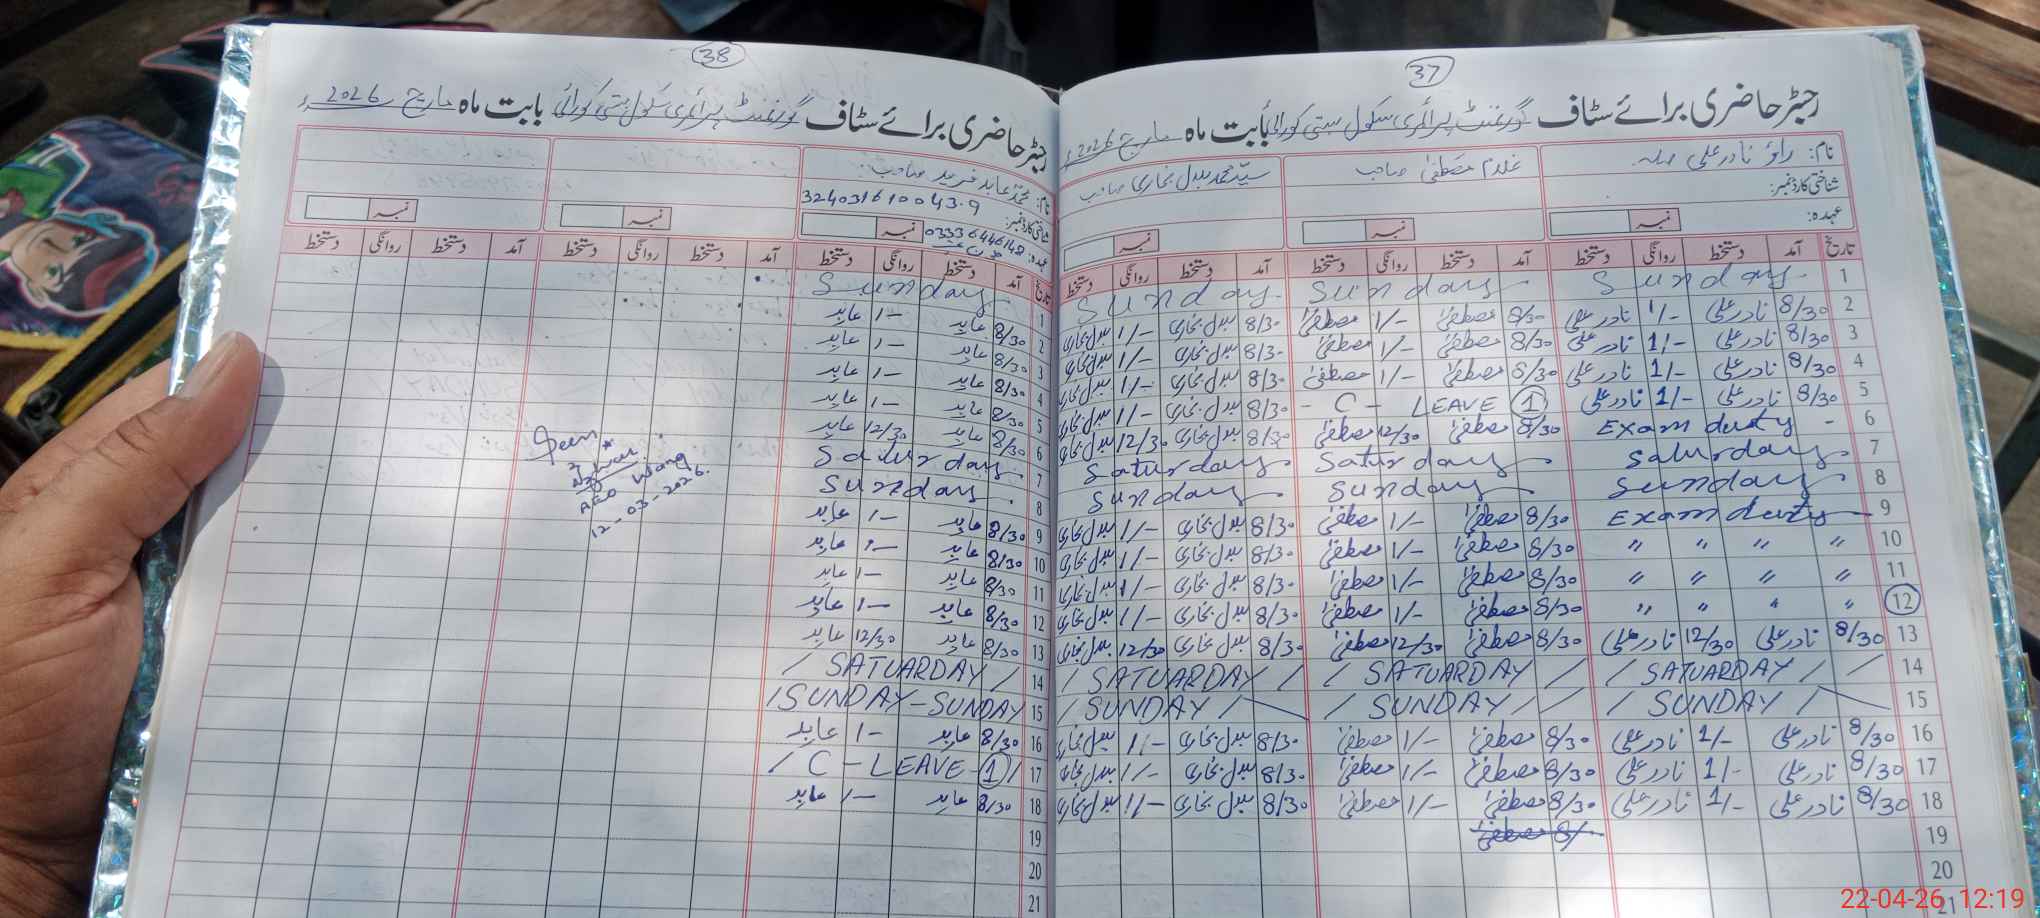 37
رجسٹر حاضری برائے سٹاف گورنمنٹ پرائمری سکول بستی کورائی بابت ماہ مارچ 2026ء
نام: راؤ نادر علی صاحب غلام مصطفیٰ صاحب سید محمد بدل بخاری صاحب
شناختی کارڈ نمبر:
عہدہ: نمبر نمبر نمبر
تاریخ آمد دستخط روانگی دستخط آمد دستخط روانگی دستخط آمد دستخط روانگی دستخط
1 Sunday Sunday Sunday
2 8/30 نادر علی 1/- نادر علی 8/30 مصطفیٰ 1/- مصطفیٰ 8/30 بدل بخاری 1/- بدل بخاری
3 8/30 نادر علی 1/- نادر علی 8/30 مصطفیٰ 1/- مصطفیٰ 8/30 بدل بخاری 1/- بدل بخاری
4 8/30 نادر علی 1/- نادر علی 8/30 مصطفیٰ 1/- مصطفیٰ 8/30 بدل بخاری 1/- بدل بخاری
5 8/30 نادر علی 1/- نادر علی - C - LEAVE 1 8/30 بدل بخاری 1/- بدل بخاری
6 Exam duty - 8/30 مصطفیٰ 12/30 مصطفیٰ 8/30 بدل بخاری 12/30 بدل بخاری
7 Saturday Saturday Saturday
8 Sunday Sunday Sunday
9 Exam duty 8/30 مصطفیٰ 1/- مصطفیٰ 8/30 بدل بخاری 1/- بدل بخاری
10 " " " " 8/30 مصطفیٰ 1/- مصطفیٰ 8/30 بدل بخاری 1/- بدل بخاری
11 " " " " 8/30 مصطفیٰ 1/- مصطفیٰ 8/30 بدل بخاری 1/- بدل بخاری
12 " " " " 8/30 مصطفیٰ 1/- مصطفیٰ 8/30 بدل بخاری 1/- بدل بخاری
13 8/30 نادر علی 12/30 نادر علی 8/30 مصطفیٰ 12/30 مصطفیٰ 8/30 بدل بخاری 12/30 بدل بخاری
14 / SATUARDAY / / / SATUARDAY / / / SATUARDAY /
15 / SUNDAY / / SUNDAY / / / SUNDAY /
16 8/30 نادر علی 1/- نادر علی 8/30 مصطفیٰ 1/- مصطفیٰ 8/30 بدل بخاری 1/- بدل بخاری
17 8/30 نادر علی 1/- نادر علی 8/30 مصطفیٰ 1/- مصطفیٰ 8/30 بدل بخاری 1/- بدل بخاری
18 8/30 نادر علی 1/- نادر علی 8/30 مصطفیٰ 1/- مصطفیٰ 8/30 بدل بخاری 1/- بدل بخاری
19 8/ مصطفیٰ
20
21
38
رجسٹر حاضری برائے سٹاف گورنمنٹ پرائمری سکول بستی کورائی بابت ماہ مارچ 2026ء
نام: محمد عابد فرید صاحب
شناختی کارڈ نمبر: 324031610043-9
عہدہ: 03336446148 نمبر نمبر نمبر
تاریخ آمد دستخط روانگی دستخط آمد دستخط روانگی دستخط آمد دستخط روانگی دستخط
1 Sunday
2 8/30 عابد 1- عابد
3 8/30 عابد 1- عابد
4 8/30 عابد 1- عابد
5 8/30 عابد 1- عابد
6 8/30 عابد 12/30 عابد
7 Saturday
8 Sunday
9 8/30 عابد 1- عابد
10 8/30 عابد 1- عابد
11 8/30 عابد 1- عابد
12 8/30 عابد 1- عابد
13 8/30 عابد 12/30 عابد
14 / SATUARDAY /
15 / SUNDAY - SUNDAY
16 8/30 عابد 1- عابد
17 / C - LEAVE - 1 /
18 8/30 عابد 1- عابد
19
20
21
Seen
AEO
12-03-2026.
22-04-26 12:19